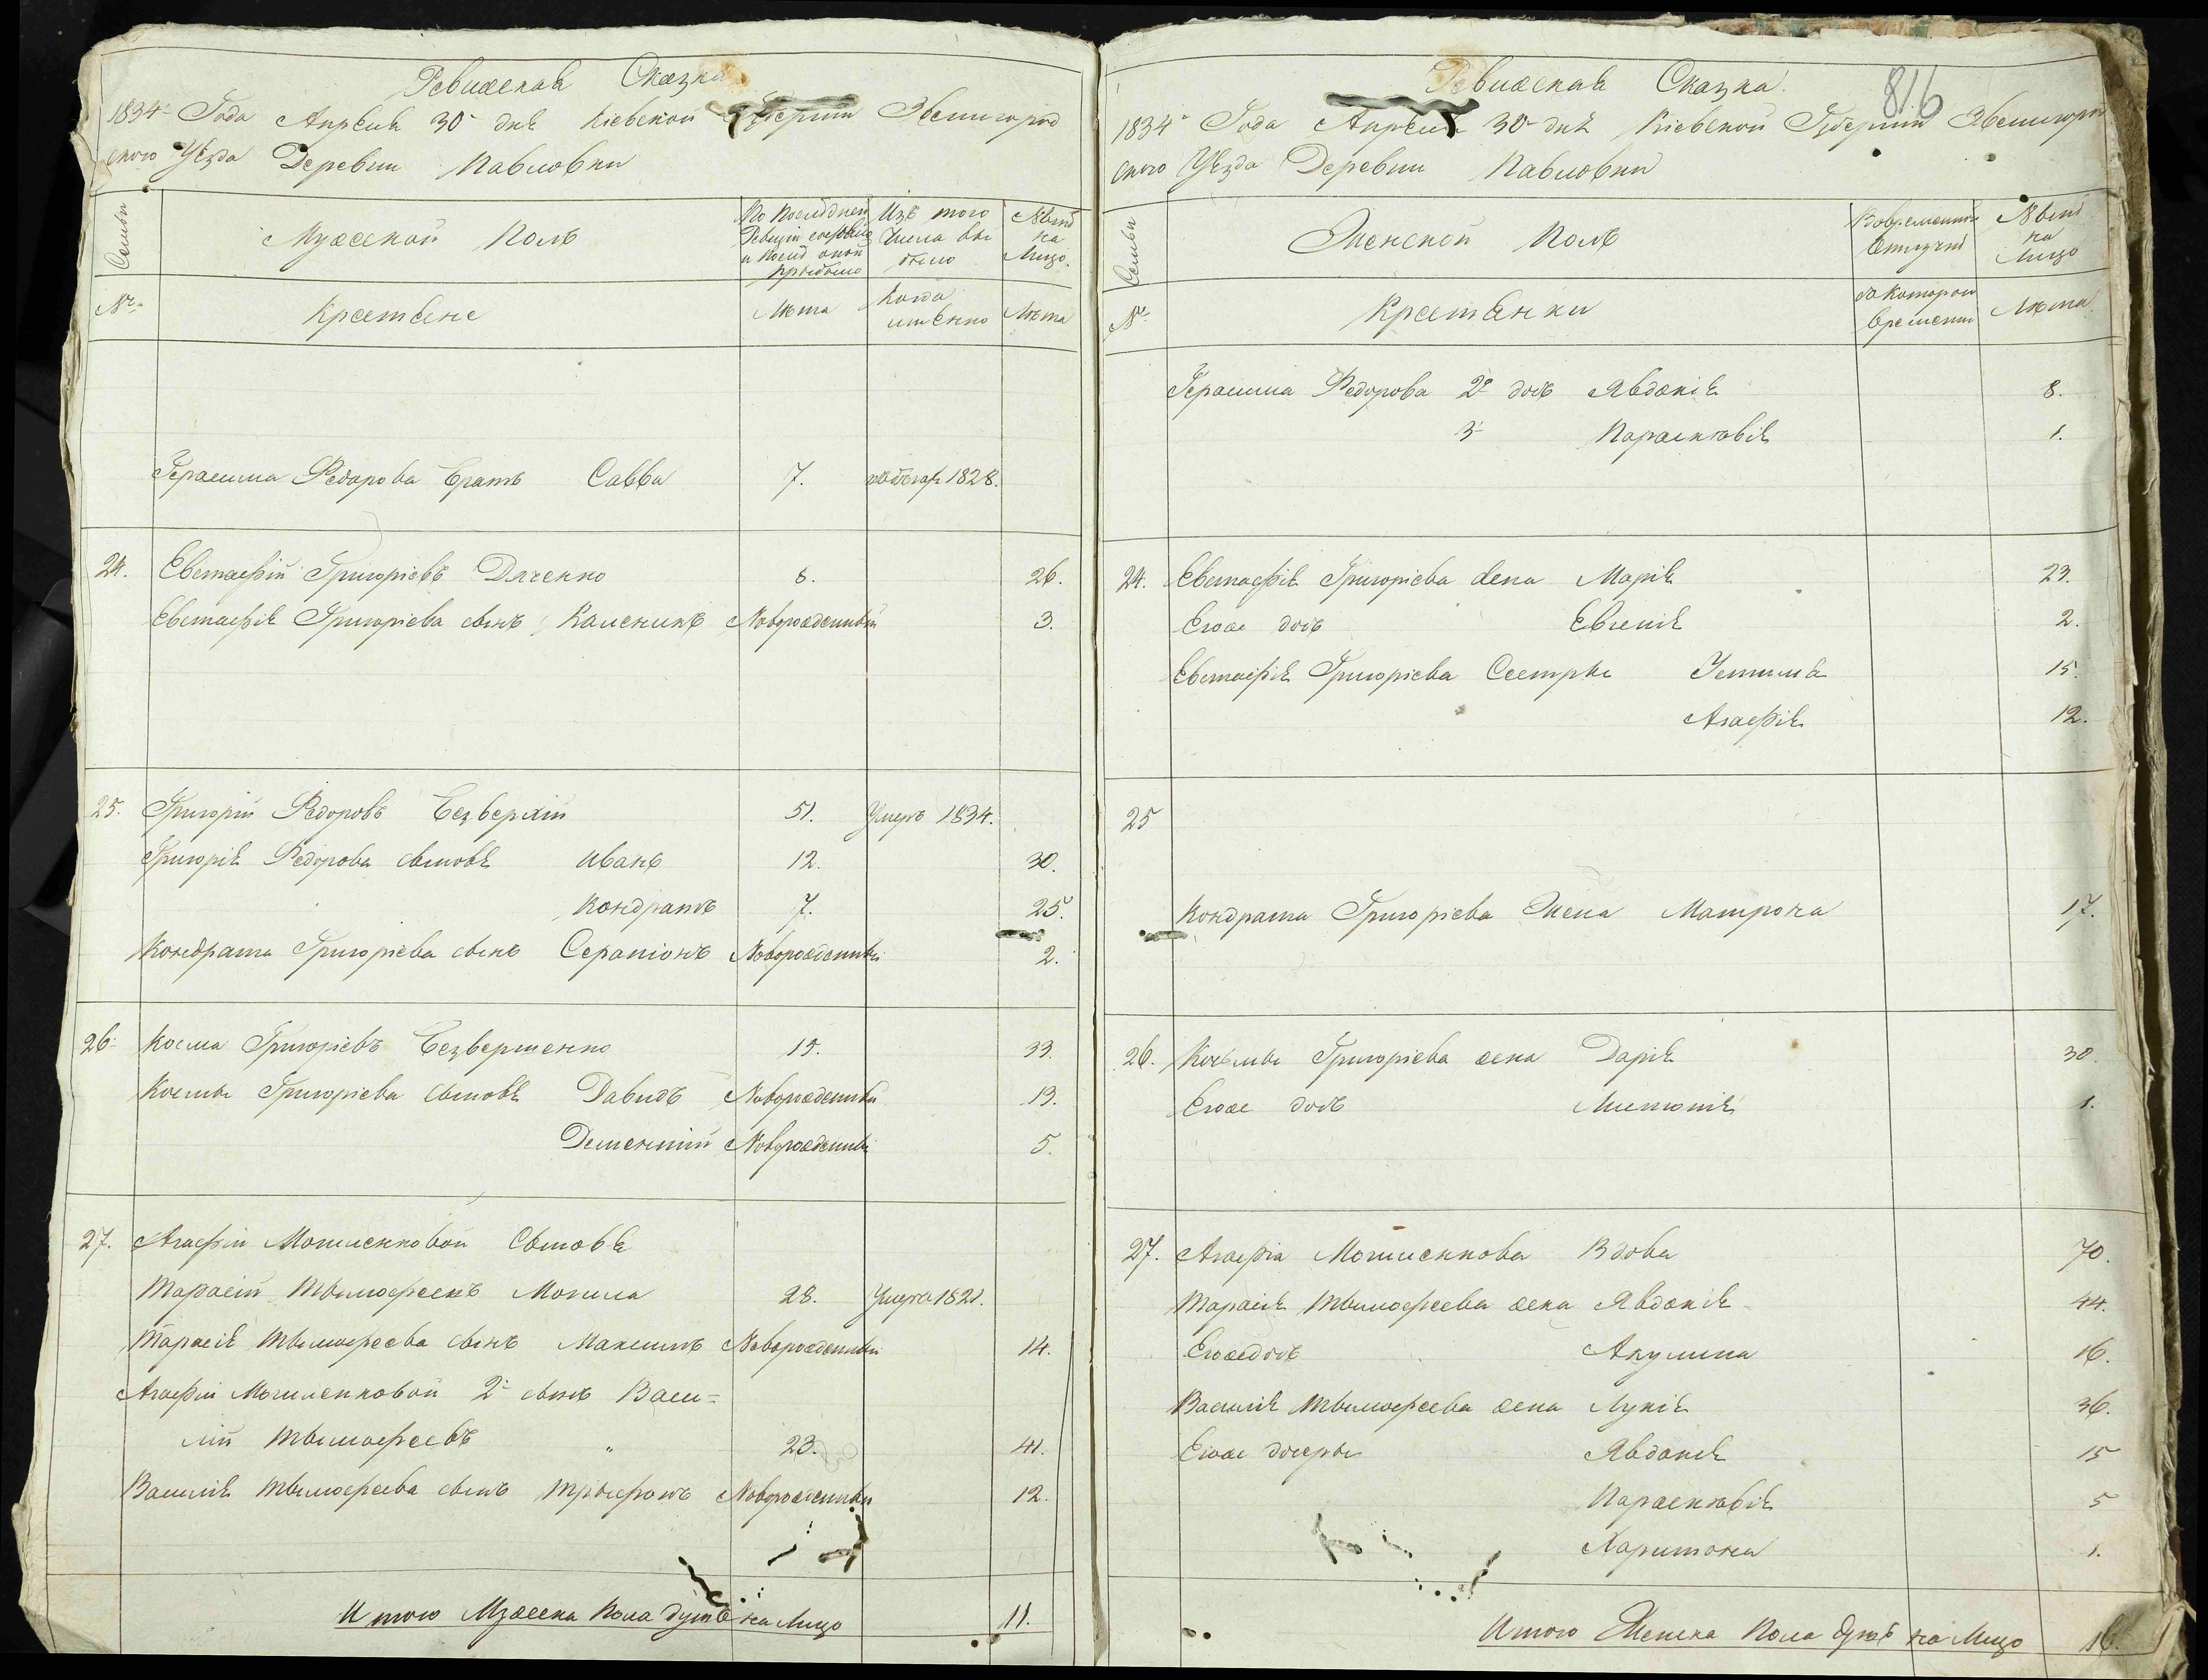 Ревизская Сказка
1834 Года Апреля 30 дня Киевской Губернии Звенигород
ского Уезда Деревни Павловки
Семьи
Мужеской Полъ
По Последней Ревизии состояло и после оной прибыло
Изъ того Числа вы было
Ныне на Лицо
№
Крестьяне
Лета
Когда именно
Лета
Герасима Федорова братъ Савва 7. 1828.
24. Евстафий Григоріевъ Дяченко 8. 26.
Евстафія Григоріева сынъ Каленикъ Новорожденный 3.
25. Григорий Федоровъ Безверхій 51. Умеръ 1834.
Григорія Федорова сыновья Иванъ 12. 30.
Кондратъ 7. 25.
Кондрата Григоріева сынъ Серапіонъ Новорожденный 2.
26. Косма Григоріевъ Безвершенко 15. 33.
Космы Григоріева сыновья Давидъ Новорожденный 13.
Дементій Новорожденный 5.
27. Агафіи Могиленковой Сыновья
Тарасій Тымофеевъ Могила 28. Умеръ 1821.
Тарасія Тымофеева сынъ Максимъ Новорожденный 14.
Агафіи Могиленковой 2й сынъ Васи=
лій Тымофеевъ " 23. 41.
Василія Тымофеева сынъ Трыфонъ Новорожденный 12.
Итого Мужеска Пола душъ на Лицо 11.
816
Ревизская Сказка.
1834 Года Апреля 30 дня Кіевской Губерніи Звенигород
ского Уезда Деревни Павловки
Семьи
Женской Полъ
Во временной отлучке
Ныне на Лицо
№
Крестьянки
Съ котораго Времени
Лета
Герасима Федорова 2я дочь Явдокія 8.
3 Параскювія 1.
24. Евстафія Григоріева жена Марія 23.
Егоже дочь Евгенія 2.
Евстафія Григоріева Сестры Устимья 15.
Агафія 12.
25
Кондрата Григоріева Жена Матрона 17.
26. Космы Григоріева жена Дарія 30.
Егоже дочь 1.
27. Агафіа Могиленкова Вдова 70.
Тарасія Тымофеева жена Явдокія 44.
Егоже дочь Акулина 16.
Василія Тымофеева жена Лукія 36.
Егоже дочеры Явдокія 15
Параскювія 5
Харитона 1.
Итого Женска Пола душъ на Лицо 16.